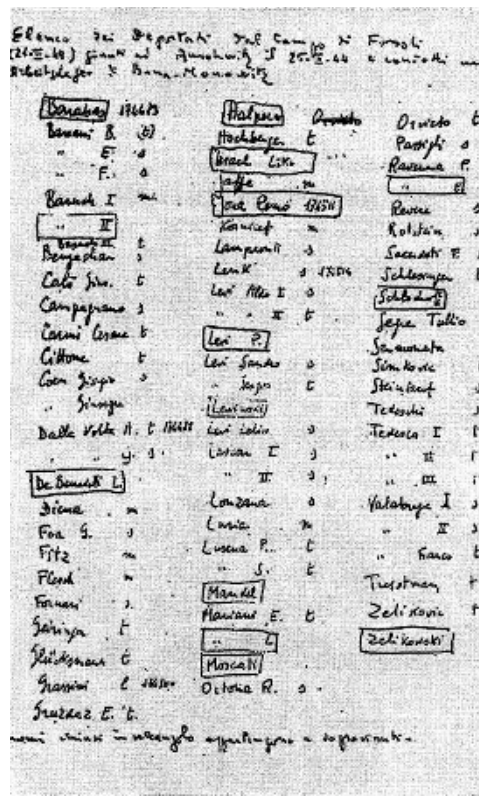 Elenco dei Deportati dal Campo di Fossoli
(22-II-44) giunti ad Auschwitz il 26-II-44 e condotti
Arbeitslager di Buna-Monowitz
Bonabas 174473
Bassani B. (t)
" E. s
" F. s
Baruch I m
" II
Baruch III t
Bengachan s
Calò Gius. t
Campagnano s
Carmi Cesare t
Cittone t
Coen Giorgio s
" Giuseppe
Dalla Volta A. t
" " G. s
De Benedetti L.
Diena m
Foa G. s
Fitz m
Flesch m
Fornari s
Geiringer t
Glücksmann t
Grassini l
Gruzdaz E. t.
Halpern
Hochberger t
Israel Liko
Jaffe m
Jona Remo 174511
Konnief m
Lamprouti s
Lenk s
Levi Aldo I s
" " II t
Levi P.
Levi Sandro s
" Sergio t
Levi Lelio s
Lussan I s
" II s
Lonzana s
Luria m
Lusena P. t
" S. t
Mandel
Mariani E. t
" L
Moscati
Ortona R. s
Orvieto t
Passigli s
Ravenna P.
" E
Revere s
Rolstein s
Sacerdoti E. s
Schlesinger t
Segre Tullio
Sermoneta
Simkovic t
Steinlauf s
Tedeschi s
Tedesco I
" II
" III
Valabrega I s
" II s
" Franco t
Trostman t
Zelikovic t
Zelikovski
nomi chiusi in rettangolo appartengono a sopravvissuti.